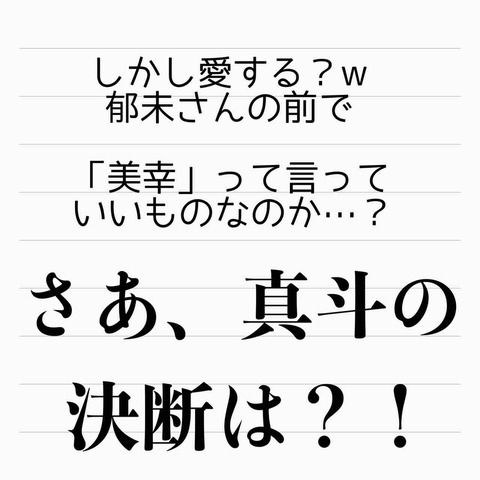 しかし愛する？w
郁未さんの前で
「美幸」って言って
いいものなのか…？
さあ、真斗の
決断は？！